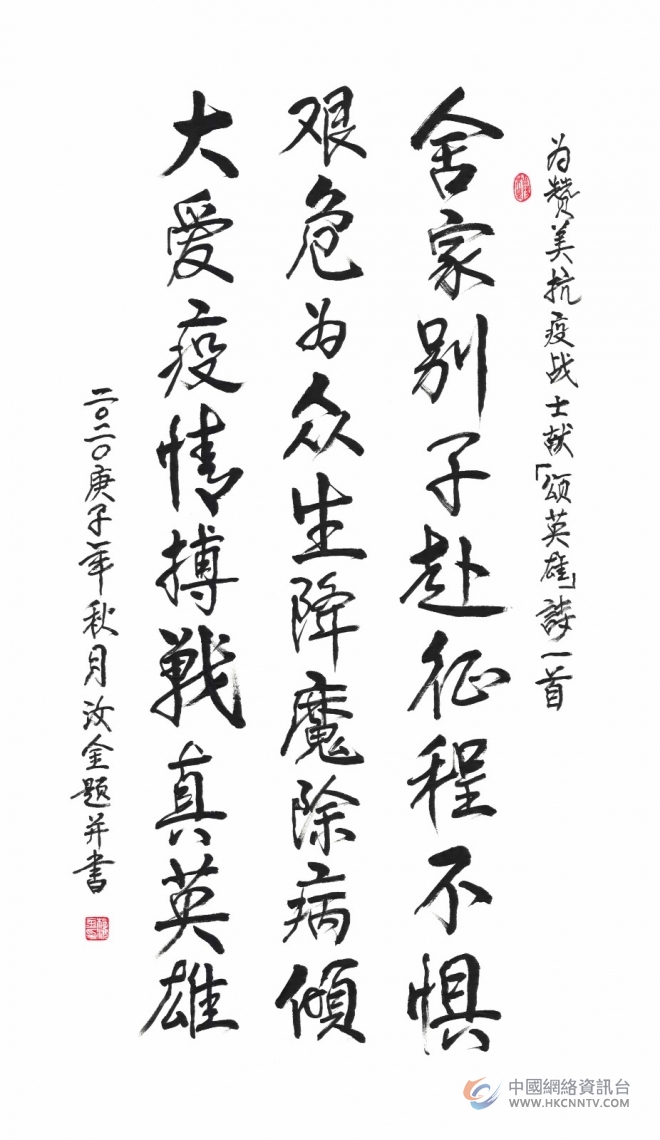 为赞美抗疫战士献「颂英雄」詩一首
舍家别子赴征程不惧
艰危为众生降魔除病倾
大爱疫情搏戰真英雄
二〇二〇庚子年秋月汝金题并书
中國網絡資訊台
WWW.HKCNNTV.COM